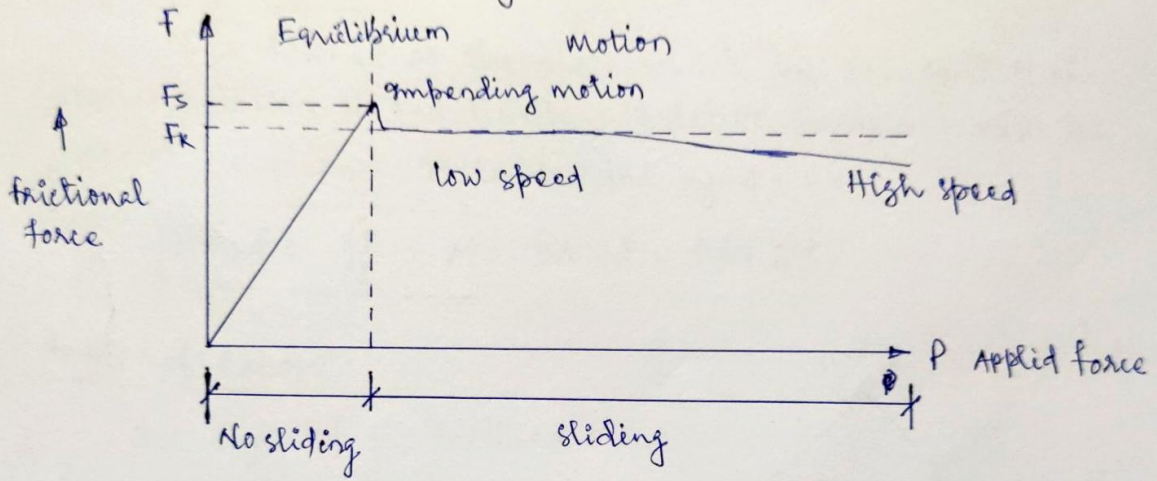 F
Equilibrium
motion
Fs
impending motion
FK
frictional
force
low speed
High speed
P Applid force
No sliding
sliding